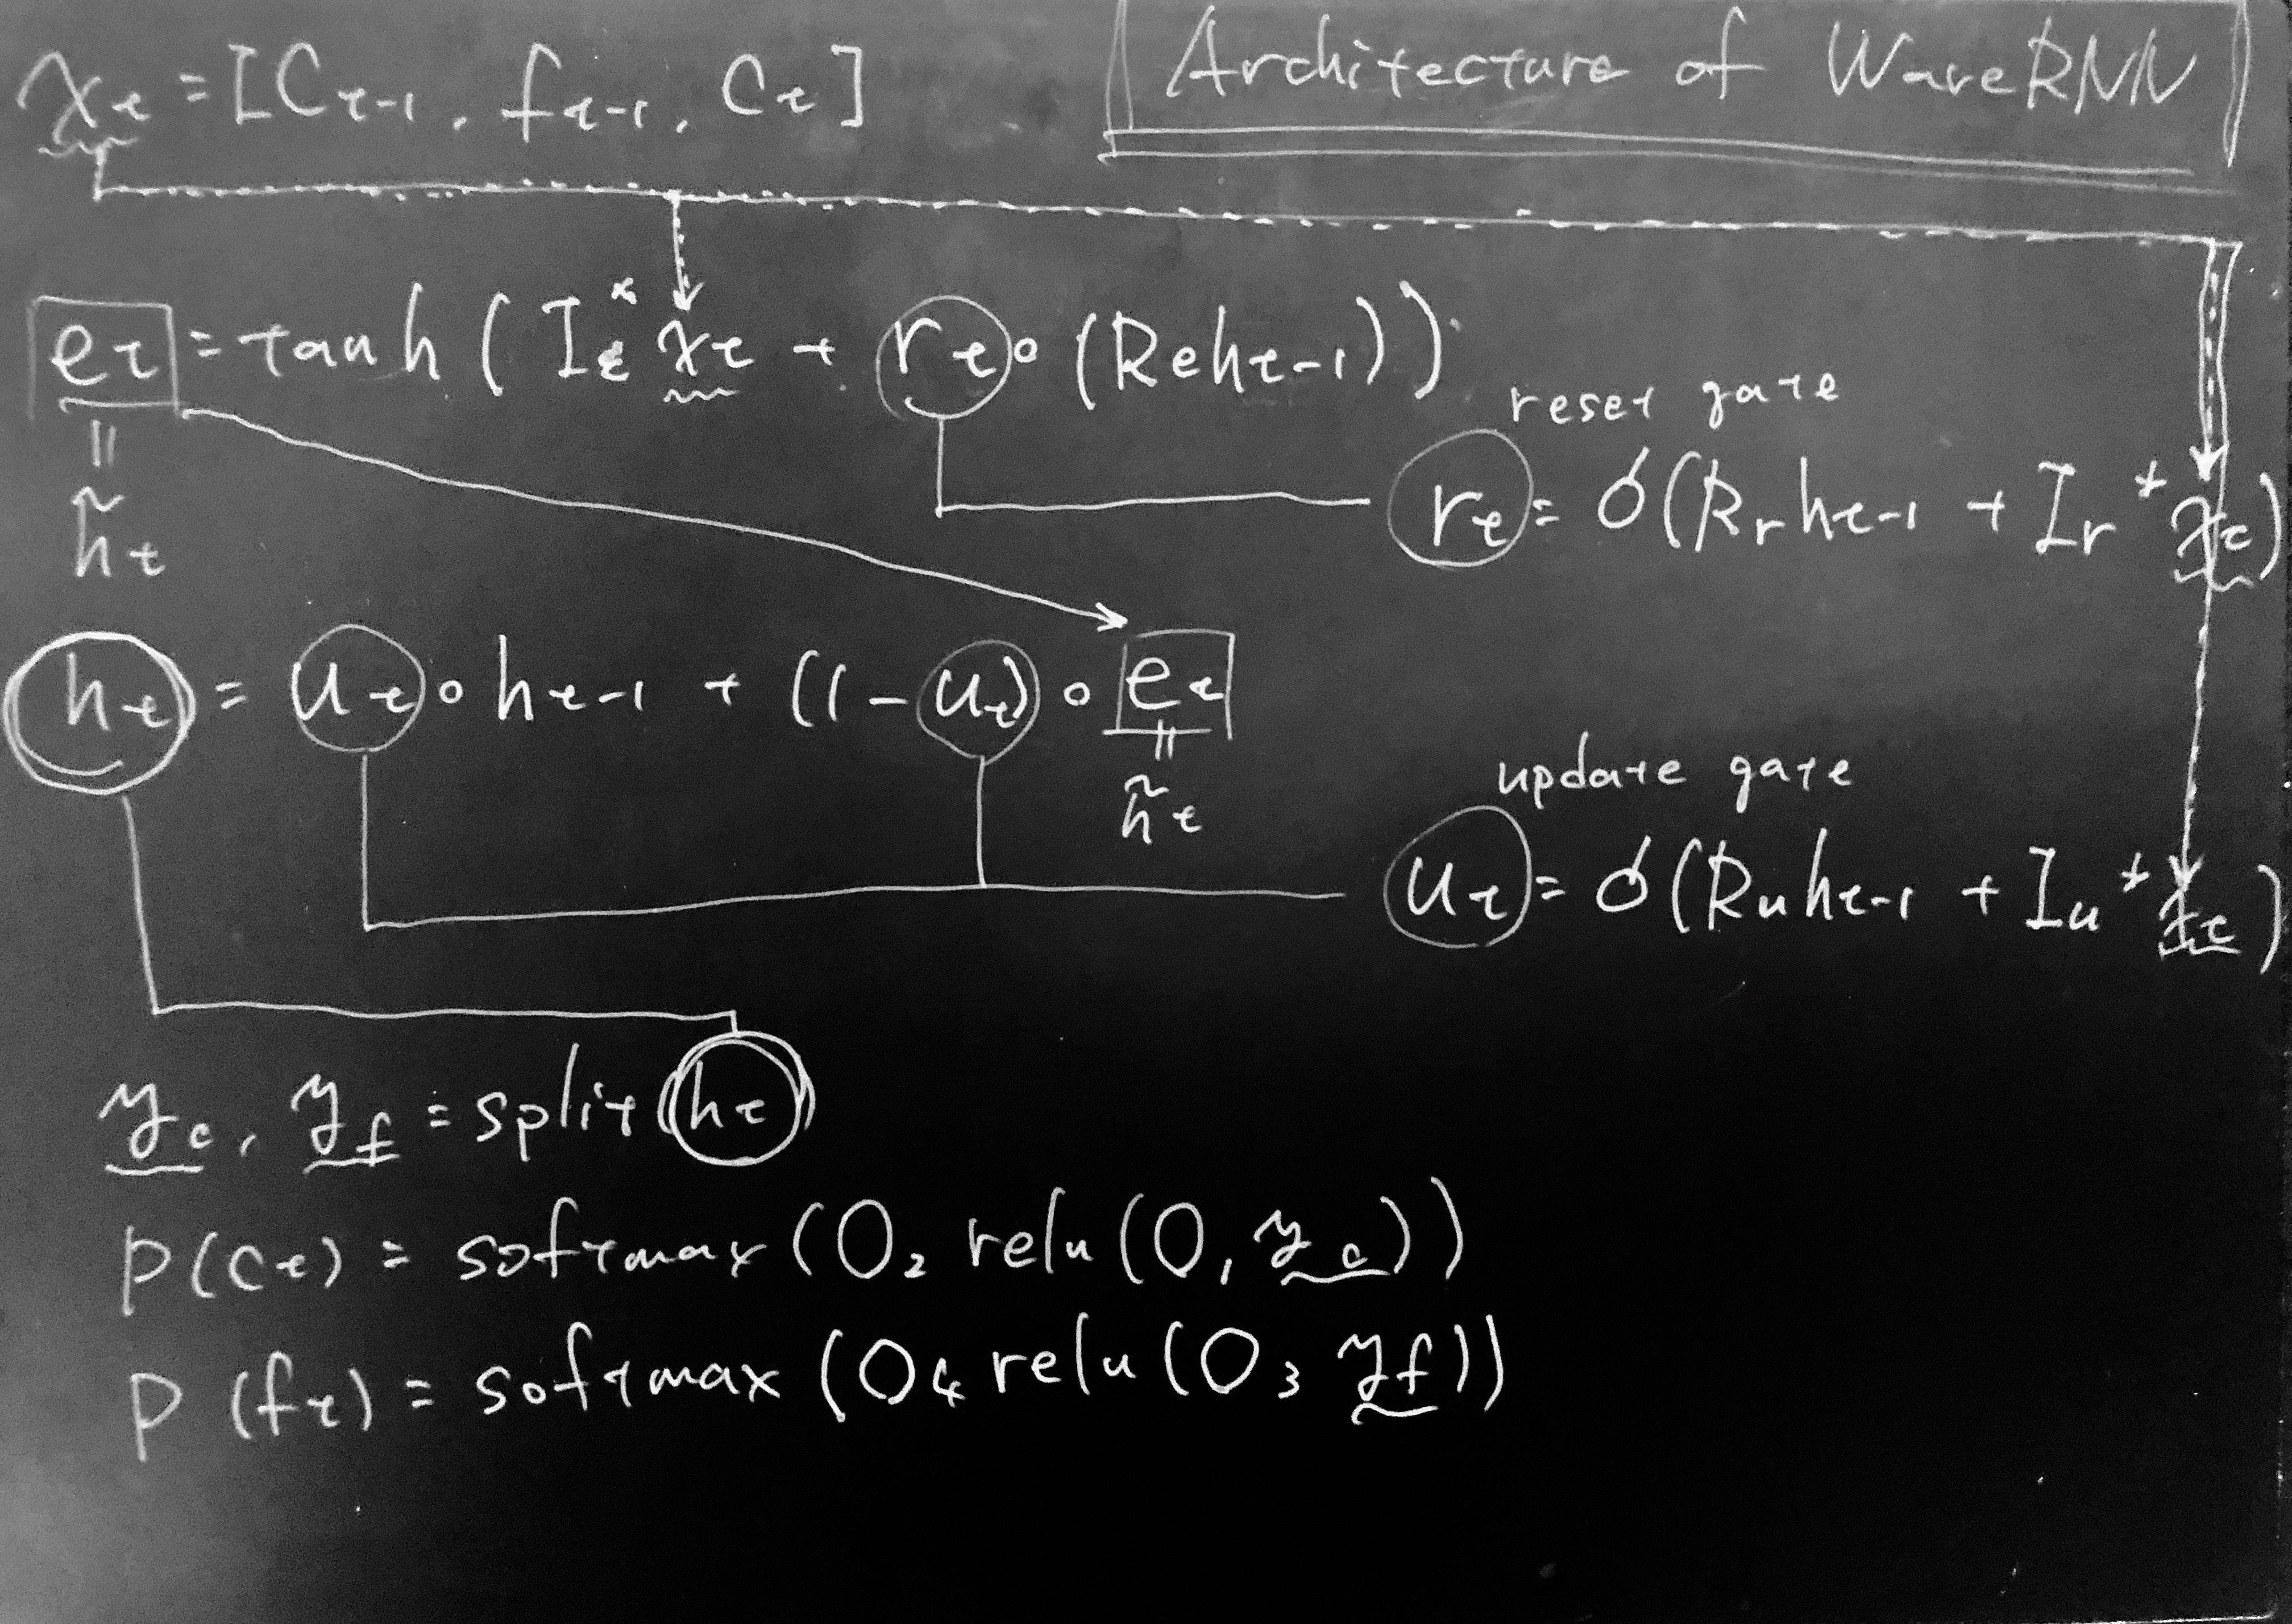 Architecture of WaveRNN
xₜ = [Cₜ₋₁, fₜ₋₁, Cₜ]
eₜ = tanh (Iₑ* xₜ + rₜ∘(Rₑhₜ₋₁))
||
h̃ₜ
reset gate
rₜ = σ(Rᵣhₜ₋₁ + Iᵣ* xₜ)
hₜ = uₜ∘hₜ₋₁ + (1-uₜ)∘eₜ
||
h̃ₜ
update gate
uₜ = σ(Rᵤhₜ₋₁ + Iᵤ* xₜ)
y_c, y_f = split(hₜ)
P(Cₜ) = softmax(O₂ relu(O₁ y_c))
P(fₜ) = softmax(O₄ relu(O₃ y_f))